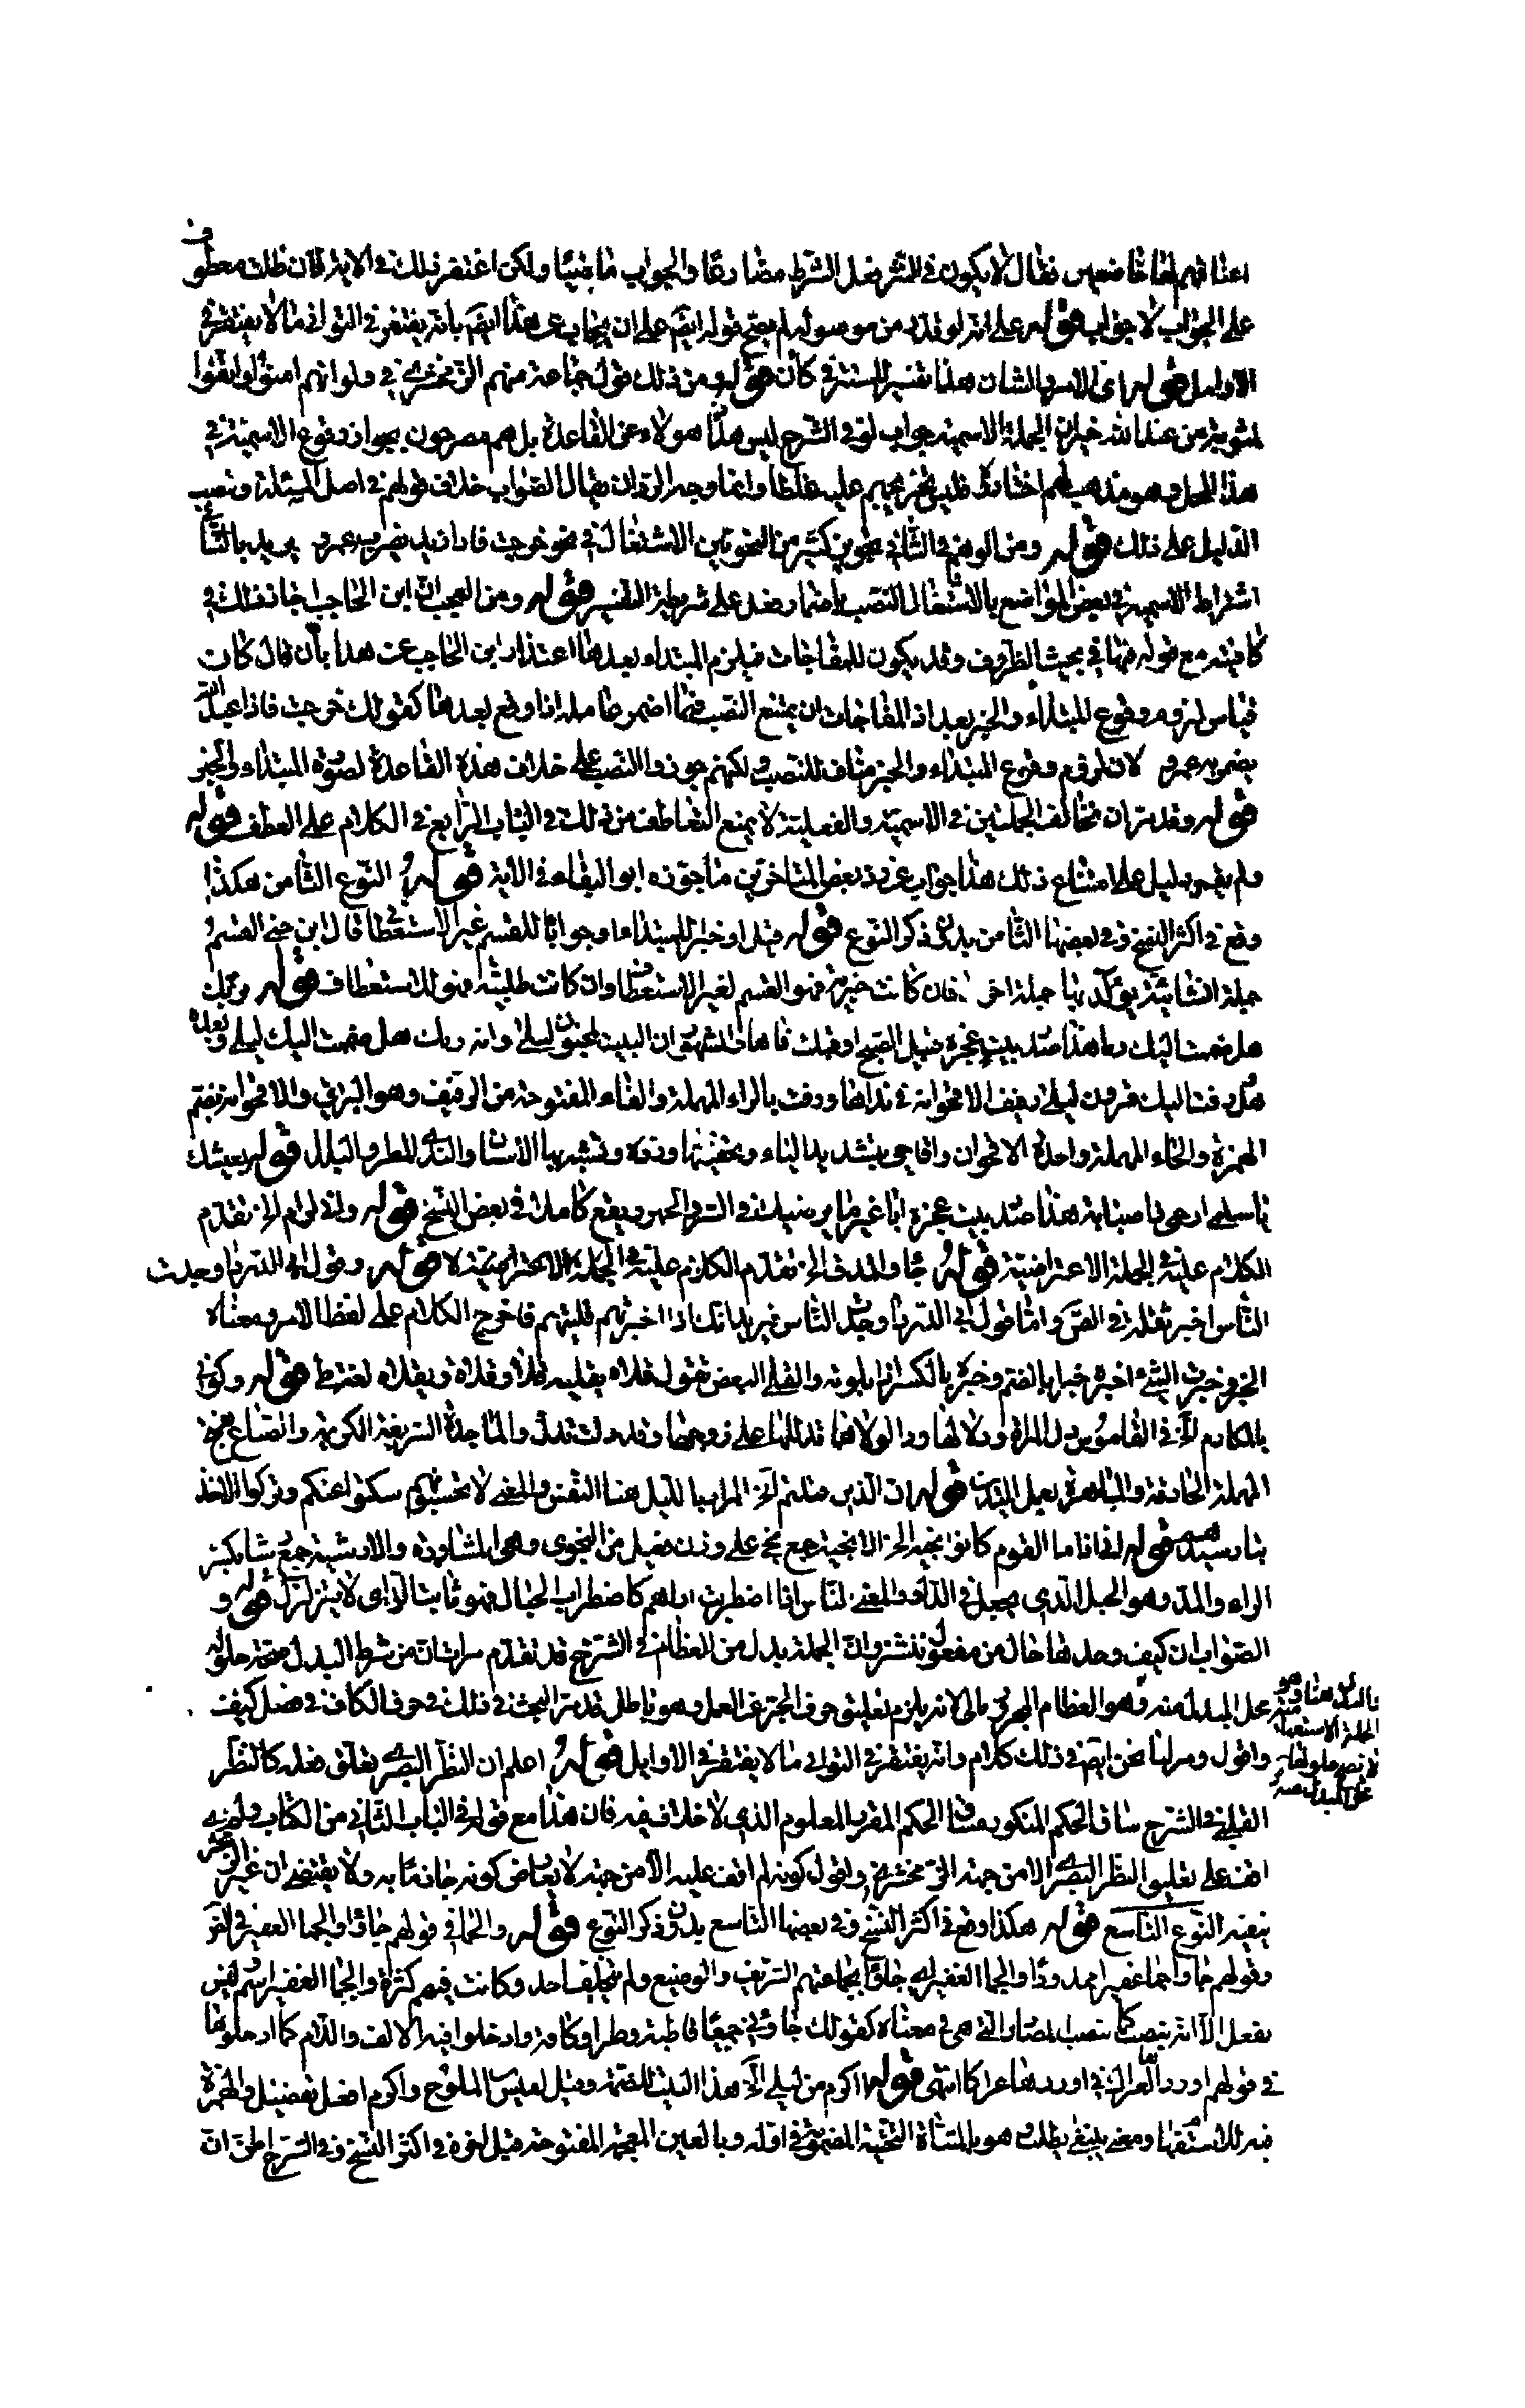 اعناقهم لها خاضعين فقال لا يكون في النثر فعل الشرط مضارعا والجواب ماضيا ولكن اغتفر ذلك في الاية فان ظلت معطوف
على الجواب لا جواب قوله على انه لو قدر من موصولة لم يصح قوله ايضا على ان يجاب عن هذا ايضا بانه يغتفر في الثواني ما لا يغتفر في
الاوايل قوله اى الامر والشان هذا تفسير للمستتر في كان قوله ومن ذلك قول جماعة منهم الزمخشري في ولو انهم امنوا واتقوا
لمثوبة من عند الله خير ان الجملة الاسمية جواب لو في الشرح ليس هذا هؤلاء عن القاعدة بل هم مصرحون بجواز وقوع الاسمية في
هذا المحل وهو مذهب لهم اختاروه فليس تخريجهم عليه غلطا وانما وجه الرد ان يقال الصواب خلاف قولهم في اصل المسئلة وتنصيب
الدليل على ذلك قوله ومن الوهم في الثاني تجويز كثير من النحويين الاشتغال في نحو خرجت فاذا زيد يضربه عمرو يريد بالثاني
اشتراط الاسمية في بعض المواضع بالاشتغال النصب باضمار فعل على شريطة التفسير قوله ومن العجب ان ابن الحاجب اجاز ذلك في
كافيته مع قوله فيها في بحث الظروف وقد يكون للمفاجات فيلزم المبتداء بعدها اعتذار ابن الحاجب عن هذا بان قال كان
قياس لزوم وقوع المبتداء والخبر بعد اذا المفاجات ان يمتنع النصب فيما اضمر عامله اذا وقع بعدها كقولك خرجت فاذا عبد الله
يضربه عمرو لان لزوم وقوع المبتداء والخبر مناف للنصب لكنهم جوزوا النصب على خلاف هذه القاعدة لصورة المبتداء والخبر
قوله وقد مر ان تخالف الجملتين في الاسمية والفعلية لا يمنع التعاطف من ذلك في الباب الرابع في الكلام على العطف قوله
ولم يقم دليل على امتناع ذلك هذا جواب عن رد بعض المتاخرين ما جوزه ابو البقاء في الاية قوله النوع الثامن هكذا
وقع في اكثر النسخ وفي بعضها الثامن بدون ذكر النوع قوله قيل او خبرا للمبتداء او جوابا للقسم غير الاستعطافي قال ابن جني القسم
جملة انشائية يؤكد بها جملة اخرى فان كانت خبرية فهو القسم لغير الاستعطاف وان كانت طلبية فهو للاستعطاف قوله بربك
هل ضممت اليك ليلى هذا صدر بيت عجزه قبيل الصبح او قبلت فاها والمشهور ان البيت لمجنون ليلى وانه بربك هل ضممت اليك ليلى وبعده
هل رفت اليك قرون ليلى رفيف الاقحوانة في نداها ورفت بالراء المهملة والفاء المفتوحة من الرفيف وهو البريق والاقحوانة بضم
الهمزة والحاء المهملة واحدة الاقحوان واقاحي بتشديد الياء وتخفيفها وتشبه بها الاسنان والندى المطر والبلل قوله بعيشك
يا سلمى ارحمي ذا صبابة هذا صدر بيت عجزه ابى غير ما يرضيك في السر والجهر ويقع كاملا في بعض النسخ قوله واني لرام الخ تقدم
الكلام عليه في الجملة الاعتراضية قوله جاوا بمذق الخ تقدم الكلام عليه في الجملة الاعتراضية قوله وقول ابي الدرداء وجدت
الناس اخبر تقله في الصحاح واما قول ابي الدرداء وجدت الناس فيريد انك اذا اخبرتهم قليتهم فاخرج الكلام على لفظ الامر ومعناه
الخبر وخبرت الشيء اخبره خبرا بالضم وخبرة بالكسر اذا بلوته والقلى البغض تقول قلاه يقليه قلا وقلاء ويقلاه لغة طي قوله وكوني
بالمكارم الخ في القاموس ودلالها على زوجها وقد دلت تدل والماجدة الشريفة الكريمة والصناع بفتح
المهملة الحاذقة والماهرة بعمل اليدين قوله ان الذين قتلتم الخ المراد بالليل هنا النفس والمعنى لا تحسبوهم سكنوا عنكم وتركوا الاخذ
بثار سيدهم قوله اني اذا ما القوم كانوا انجيه الخ الانجية جمع نجي على وزن فعيل من النجوى وهي المشاورة والارشية جمع رشاء بكسر
الراء والمد وهو الحبل الذي يجعل في الدلو والمعنى الناس اذا اضطربت اراؤهم كاضطراب الحبال فهو ثابت الراى لا يتزلزل قوله و
الصواب ان كيف وحدها حال من مفعول ننشز وان الجملة بدل من العظام في الشرح قد تقدم مرات ان من شرط البدل صحة حلوله
محل المبدل منه وهو العظام المجرور بالى لانه يلزم تعليق حرف الجر عن العمل وهو باطل قد مر البحث في ذلك في حرف الكاف في فصل كيف
بالبدل هنا وهو
الجملة الاستفهامية
لا يصح حلولها
محل المبدل منه
واقول ومر لنا نحن ايضا في ذلك كلام وانه يغتفر في الثواني ما لا يغتفر في الاوايل قوله اعلم ان النظر البصري تعلق فعله كالنظر
القلبي في الشرح ساق الحكم المذكور مساق الحكم المقرر المعلوم الذي لا خلاف فيه فان هذا مع قوله في الباب الثاني من الكتاب ولم
اقف على تعليق النظر البصري الا من جهة الزمخشري واقول كونه لم اقف عليه الا من جهته لا يعارض كونه جازما به ولا يقتضي ان غير الزمخشري
ينفيه النوع التاسع قوله هكذا وقع في اكثر النسخ وفي بعضها التاسع بدون ذكر النوع قوله والجما في قولهم جاؤا والجما الغفير في
وقولهم جاؤا جما غفيرا ممدودا والجما الغفير اى جاؤا بجماعتهم الشريف والوضيع ولم يتخلف احد وكانت فيهم كثرة والجما الغفير اسم ليس
بفعل الا انه ينصب كما تنصب المصادر التي هي في معناه كقولك جاؤني جميعا وقاطبة وطرا وكافة وادخلوا فيه الالف واللام كما ادخلوها
في قولهم اوردها العراك اى اوردها عراكا انتهى قوله ااكرم من ليلى الخ هذا البيت للصمة وقيل لقيس الملوح واكرم افعل تفضيل والهمزة
فيه للاستفهام ومعنى يبتغي يطلب وهو بالمثناة التحتية المضمومة في اوله وبالغين المعجمة المفتوحة قبل اخره في اكثر النسخ وفي الشرح